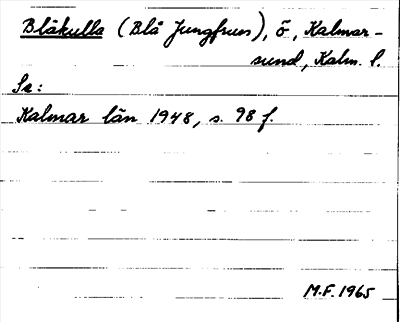 Blåkulla (Blå Jungfrun), ö, Kalmar-
sund, Kalm. l.
Se:
Kalmar län 1948, s. 98 f.
M.F. 1965